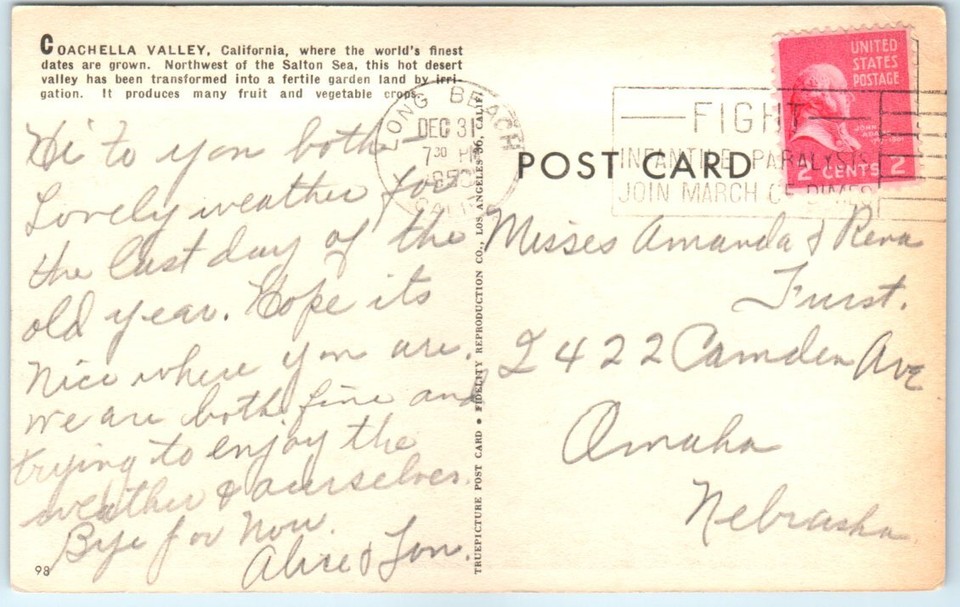 COACHELLA VALLEY, California, where the world's finest
dates are grown. Northwest of the Salton Sea, this hot desert
valley has been transformed into a fertile garden land by irri-
gation. It produces many fruit and vegetable crops.
Hi to you both –
Lovely weather for
the last day of the
old year. Hope its
Nice where you are.
we are both fine and
trying to enjoy the
weather & ourselves.
Bye for Now.
Alice & Lon.
98
LONG BEACH
DEC 31
7 30 PM
1950
CALIF.
TRUEPICTURE POST CARD • FIDELITY REPRODUCTION CO., LOS ANGELES 36, CALIF.
FIGHT
INFANTILE PARALYSIS
JOIN MARCH OF DIMES
UNITED
STATES
POSTAGE
JOHN
ADAMS
2 CENTS 2
POST CARD
Misses Amanda & Rena
Furst.
2422 Camden Ave
Omaha
Nebraska